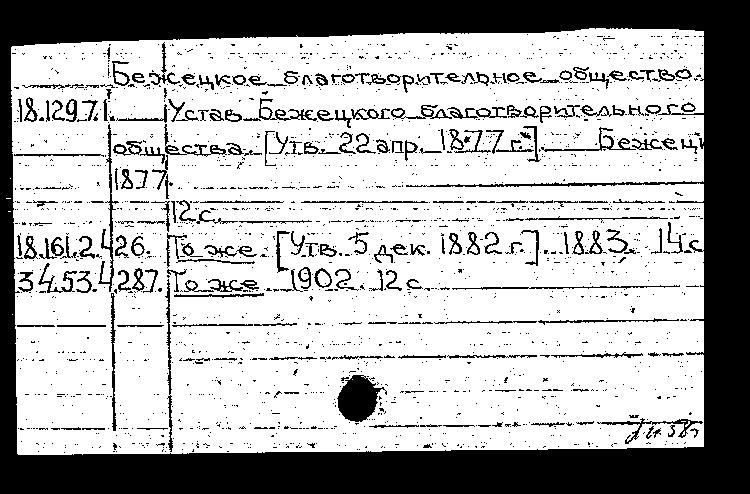 Бежецкое благотворительное общество.
18.129.7.1. Устав Бежецкого благотворительного
общества. [Утв. 22 апр. 1877 г.]. Бежецк
1877.
12 с.
18.161.2.426. То же. [Утв. 5 дек. 1882 г.]. 1883. 14 с
34.53.4.287. То же. 1902. 12 с